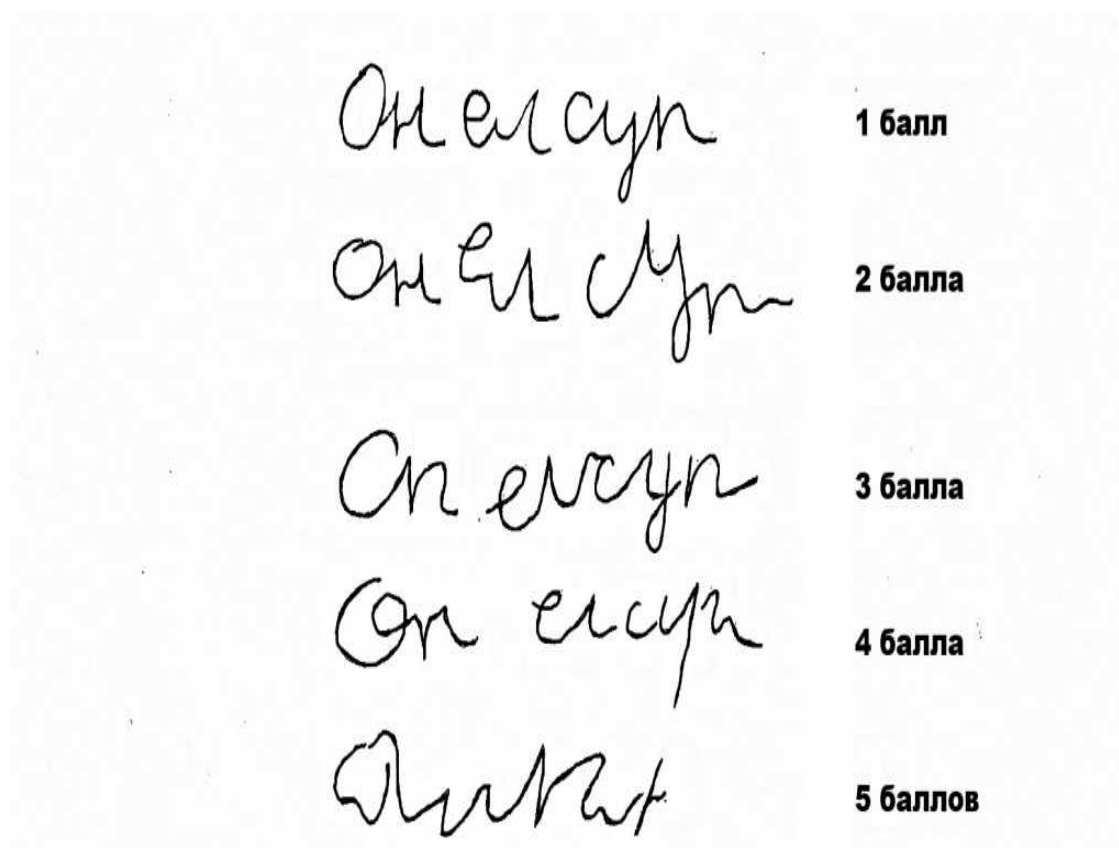 Он ел суп 1 балл
он ел суп 2 балла
Сп ел суп 3 балла
Он ел суп 4 балла
5 баллов